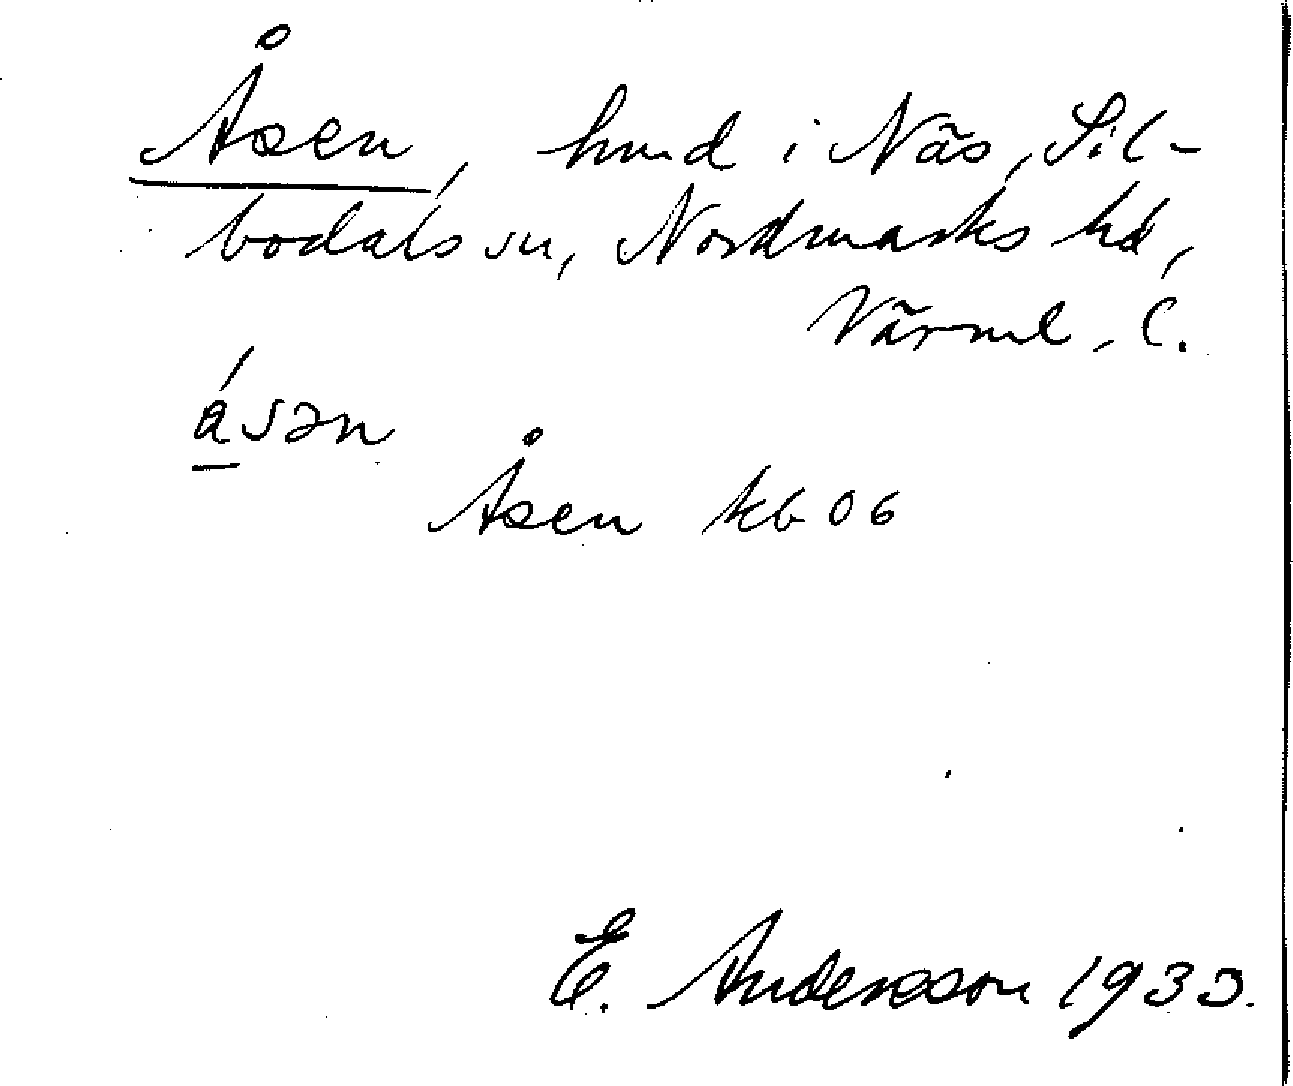 Åsen, hmd i Näs, Sil-
bodals sn, Nordmarks hd,
Värml. l.
ásən
Åsen kb 06
E. Andersson 1933.